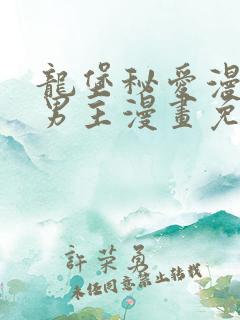 龍堡秘愛漫
男主漫畫免
許榮勇
未經同意禁止轉載